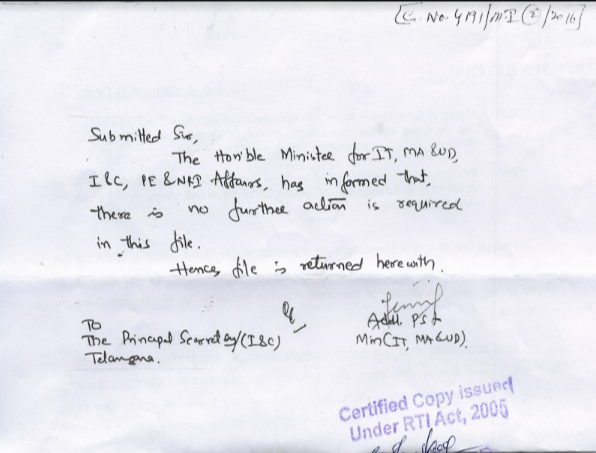 [C. No. 4191/MI(I)/2016]
Submitted Sir,
The Hon'ble Minister for IT, MA &UD,
I&C, PE & NRI Affairs, has informed that,
there is no further action is required
in this file.
Hence, file is returned herewith.
Addl. PS to
Min(IT, MA&UD).
To
The Principal Secretary (I&C)
Telangana.
Certified Copy issued
Under RTI Act, 2005